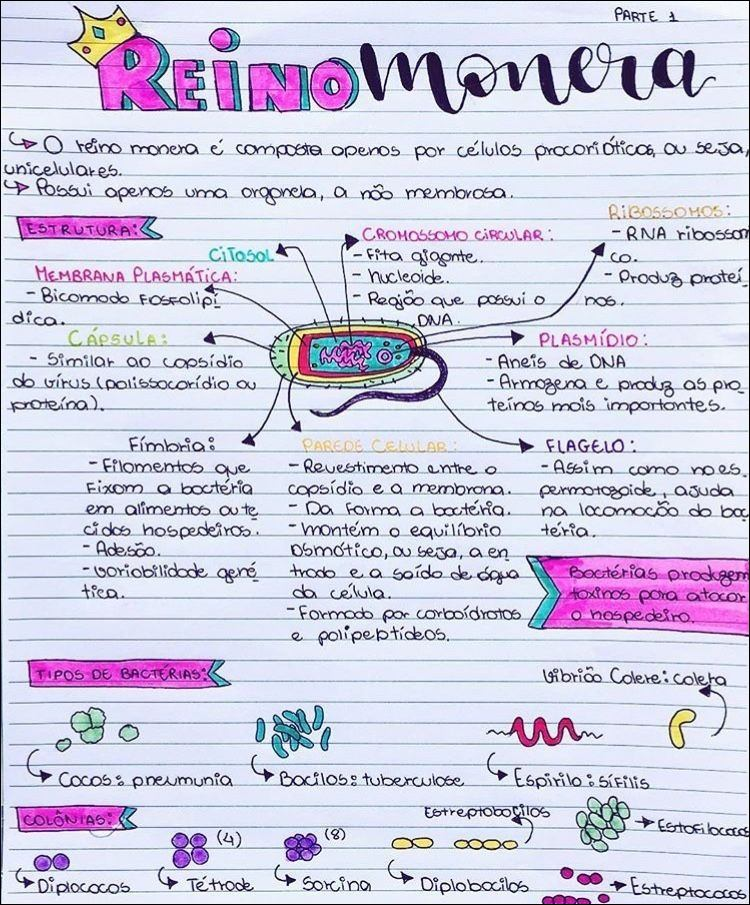 PARTE 1
REINO MONERA
O reino monera é composta apenas por células procarióticas, ou seja,
unicelulares.
Possui apenas uma organela, a não membrosa.
ESTRUTURA:
CITOSOL
MEMBRANA PLASMÁTICA:
- Bicamada fosfolipí
dica.
CÁPSULA:
- Similar ao capsídio
do vírus (polissacarídio ou
proteína).
CROMOSSOMO CIRCULAR:
- Fita gigante.
- nucleoide.
- Região que possui o
DNA.
RIBOSSOMOS:
- RNA ribossom
co.
- Produz proteí
nos.
PLASMÍDIO:
- Aneis de DNA
- Armazena e produz as pro
teínas mais importantes.
Fímbria:
- Filamentos que
Fixam a bactéria
em alimentos ou te
cidos hospedeiros.
- Adesão.
- variabilidade gené
tica.
PAREDE CELULAR:
- Revestimento entre o
capsídio e a membrana.
- Da forma a bactéria.
- montém o equilíbrio
osmótico, ou seja, a en
trada e a saída de água
da célula.
- Formado por carboídratos
e polipeptídeos.
FLAGELO:
- Assim como no es
permatozoide, ajuda
na locomoção da bac
téria.
Bactérias produzem
toxinas para atacar
o hospedeiro.
TIPOS DE BACTÉRIAS:
Vibrião Colere: colera
Cocos: pneumunia
Bacilos: tuberculose
Espirilo: sífilis
COLÔNIAS:
Diplococos
(4)
Tétrade
(8)
Sarcina
Estreptobacilos
Diplobacilos
Estafilococos
Estreptococos